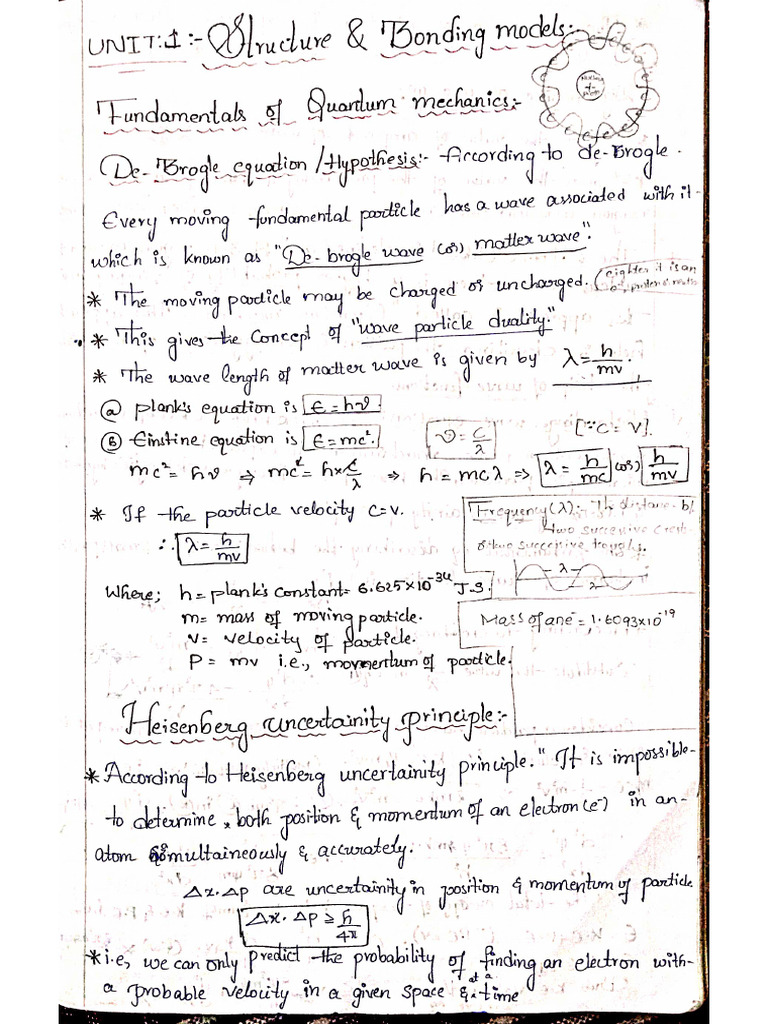 UNIT:1:- Structure & Bonding models:-
Fundamentals of Quantum mechanics:-
De-Brogle equation /Hypothesis:- According to de-Brogle.
Every moving fundamental particle has a wave associated with it.
which is known as "De-brogle wave (or) matter wave".
* The moving particle may be charged or uncharged. (eighter it is an
* This gives the Concept of "wave particle duality."
* The wave length of matter wave is given by λ = h/mv.
ⓐ plank's equation is E = hν
Ⓑ Einstine equation is E = mc². ν = C/λ [∵ C = V].
mc² = hν ⇒ mc² = h×c/λ ⇒ h = mcλ ⇒ λ = h/mc (or) h/mv
* If the particle velocity c=v. Frequency(λ):- The distance b/
two succesive crest
∴ λ = h/mv or two succesive troughs.
λ
λ
Where; h = plank's constant = 6.625×10⁻³⁴ J.S.
m = mass of moving particle. Mass of an e⁻ = 1.6093×10⁻¹⁹
v = velocity of particle.
P = mv i.e., momentum of particle.
Heisenberg uncertainity principle:-
* According to Heisenberg uncertainity principle." It is impossible
to determine both position & momentum of an electron(e⁻) in an
atom simultaineously & accurately.
Δx.Δp are uncertainity in position & momentum of particle
Δx. Δp ≥ h/4π
* i.e, we can only predict the probability of finding an electron with
a probable velocity in a given space & at a time